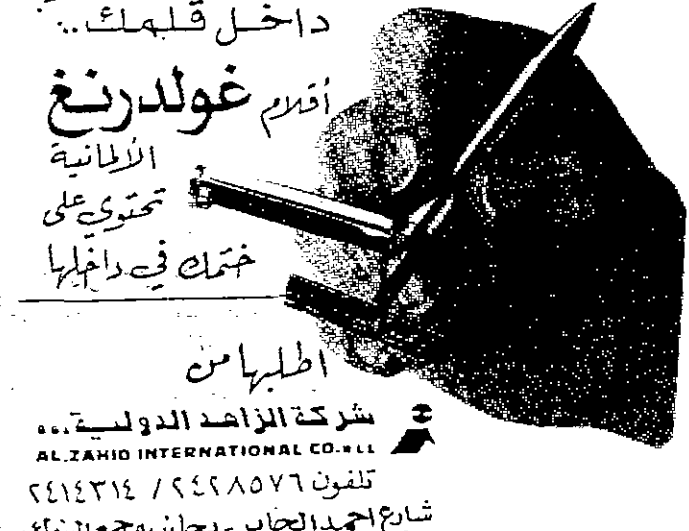 داخل قلمك..
أقلام غولدرنغ
الألمانية
تحتوي على
ختمك في داخلها
اطلبها من
شركة الزاهد الدولية
AL.ZAHID INTERNATIONAL CO.
تلفون ٢٤٢٨٥٧٦ / ٢٤١٤٣١٤
شارع احمد الجابر